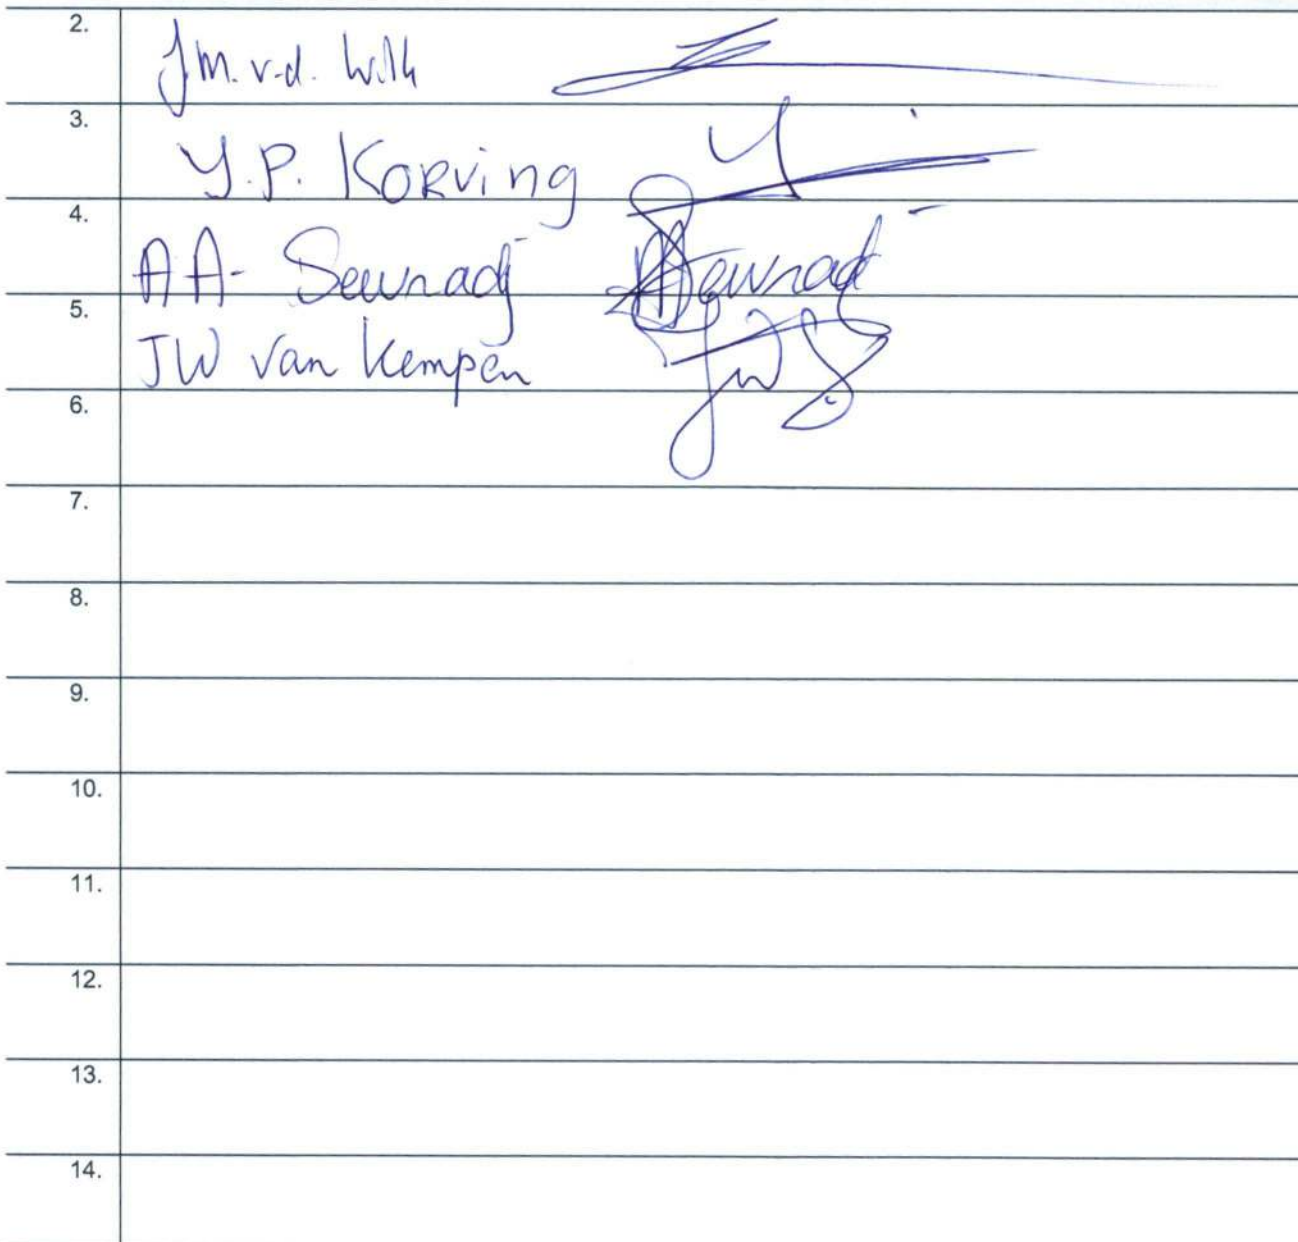 2.
J.M. v.d. Wilk
3.
Y.P. Korving
4.
AA- Sewnadj Sewnadj
5.
JW van Kempen JW
6.
7.
8.
9.
10.
11.
12.
13.
14.